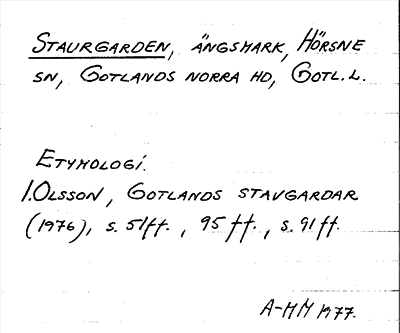 STAURGARDEN, ÄNGSMARK, HÖRSNE
SN, GOTLANDS NORRA HD, GOTL.L.
ETYMOLOGI.
I.OLSSON, GOTLANDS STAVGARDAR
(1976), s. 51ff., 95 ff., s. 91ff.
A-MM 1977.